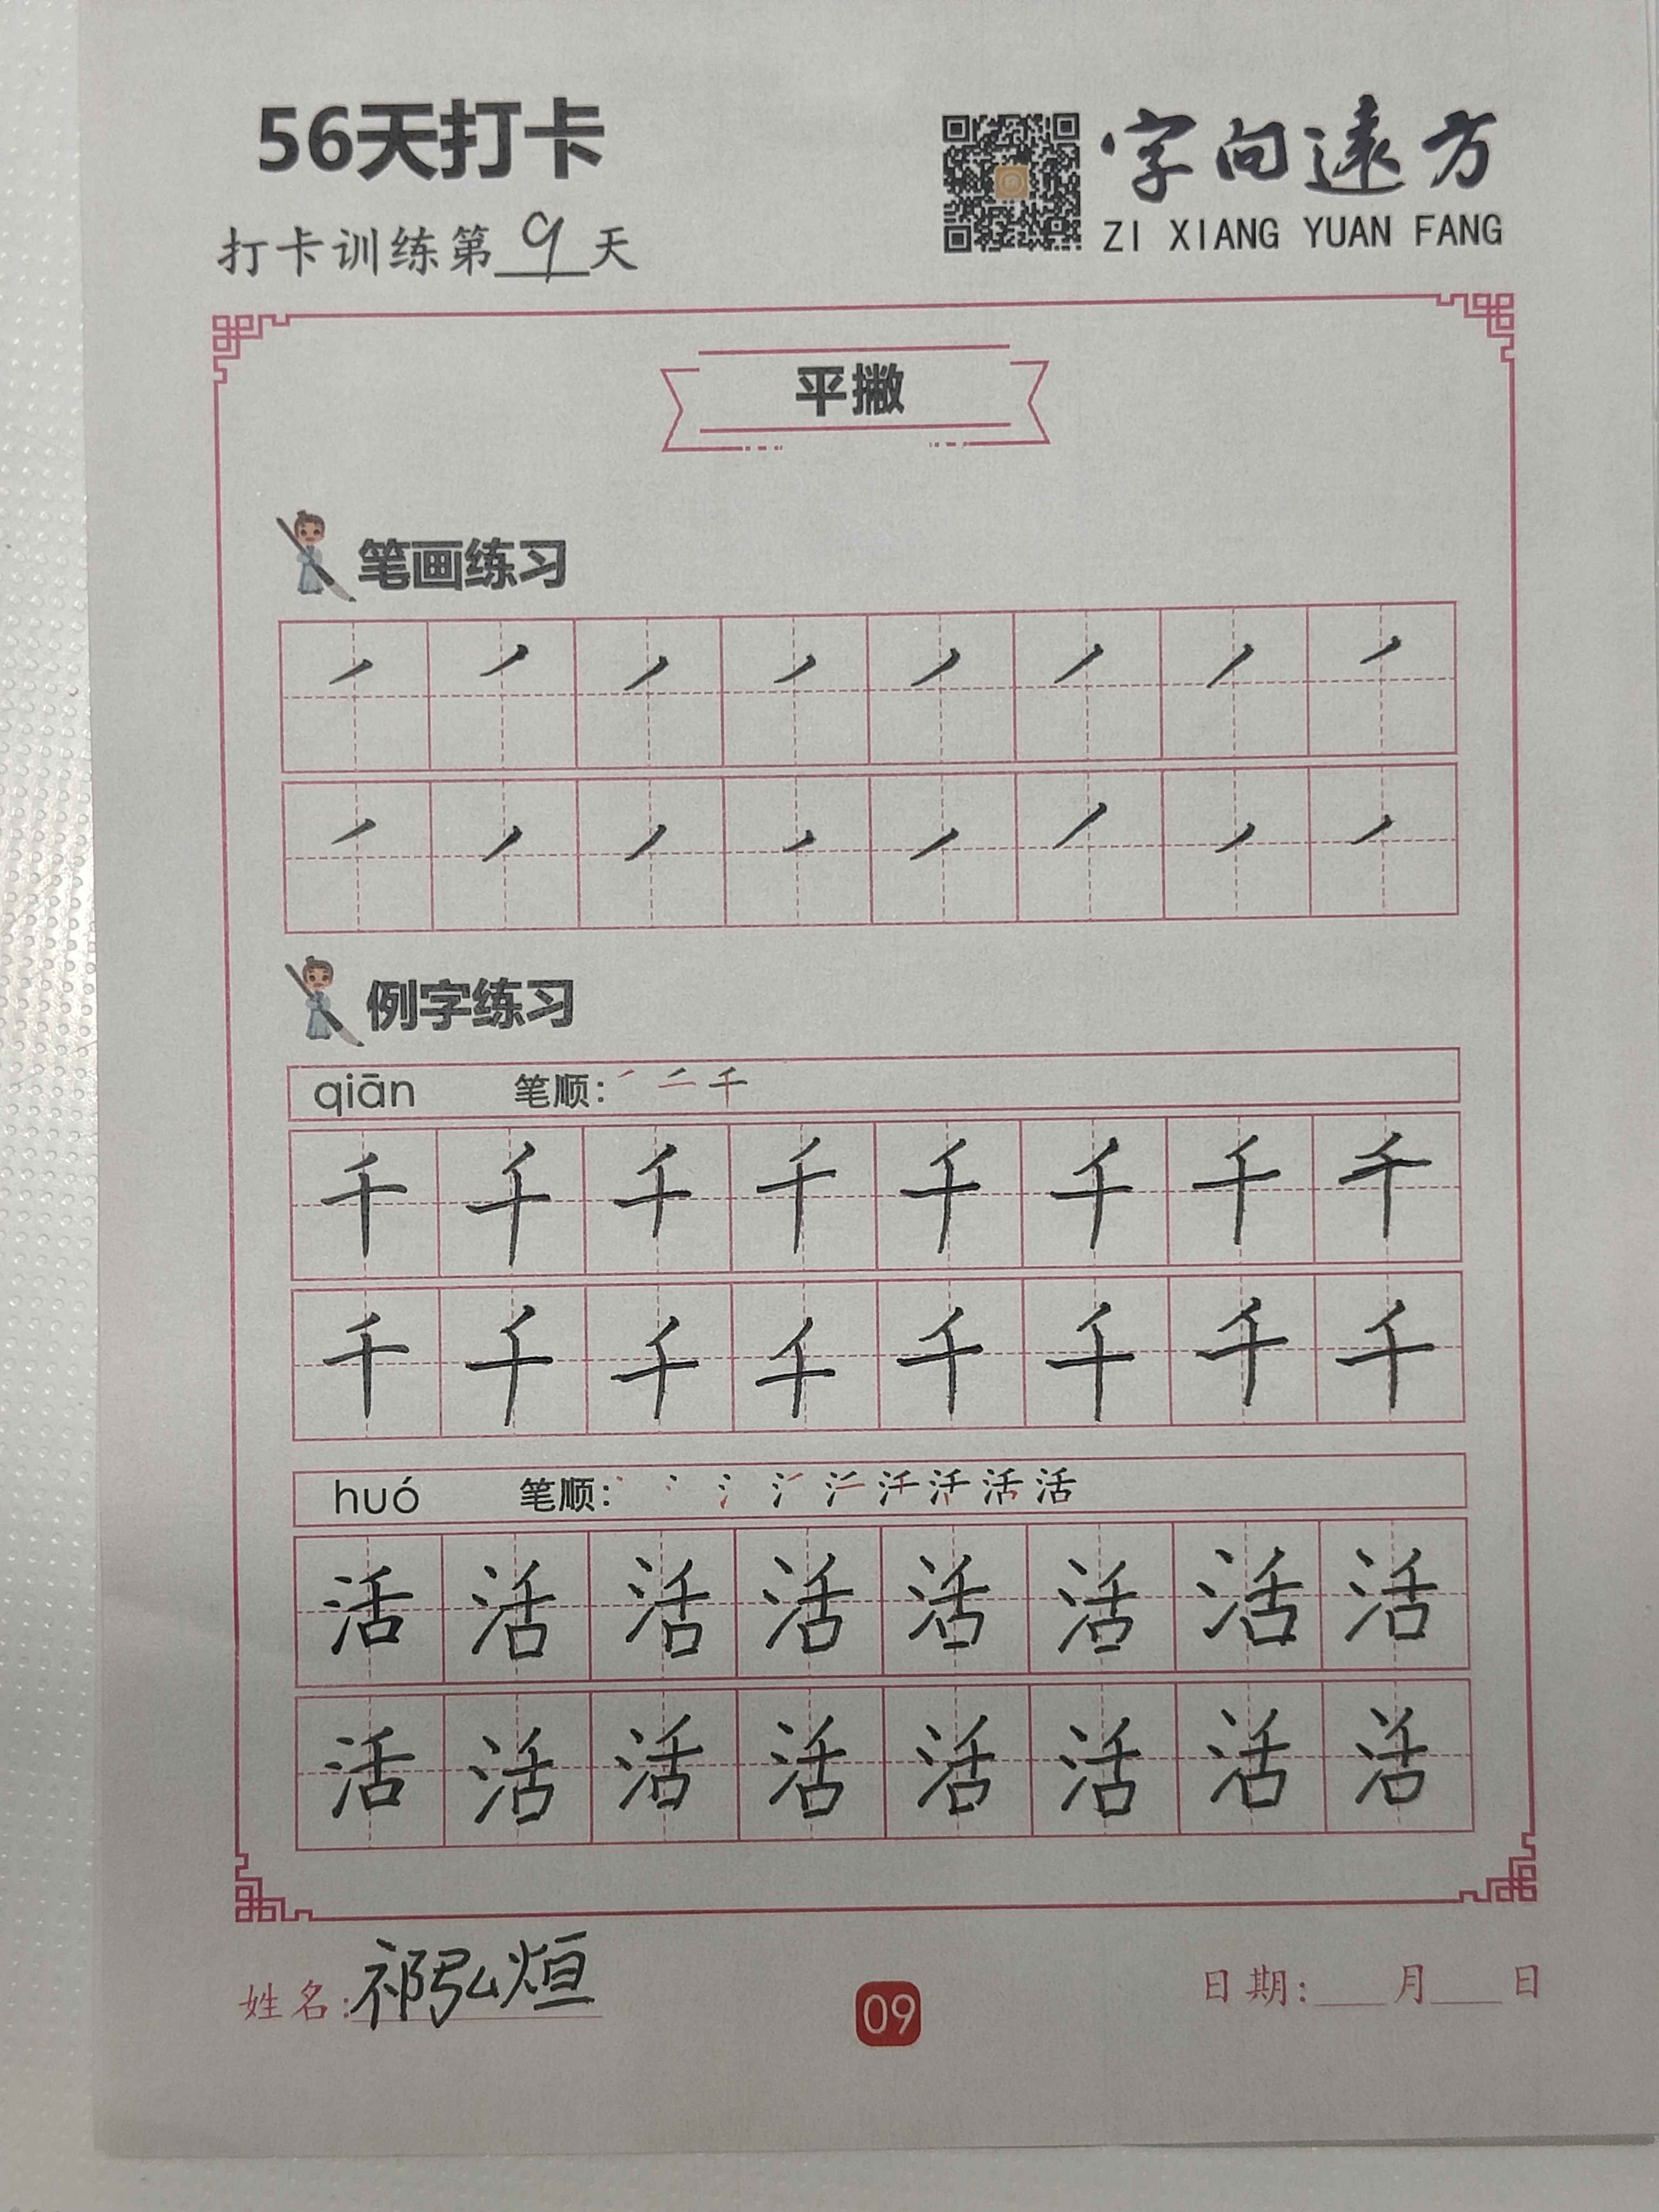 56天打卡
字向遠方
打卡训练第9天
ZI XIANG YUAN FANG
平撇
笔画练习
例字练习
qiān 笔顺: 千
千 千 千 千 千 千 千 千
千 千 千 千 千 千 千 千
huó 笔顺: 活
活 活 活 活 活 活 活 活
活 活 活 活 活 活 活 活
姓名: 祁弘烜
09
日期: 月 日